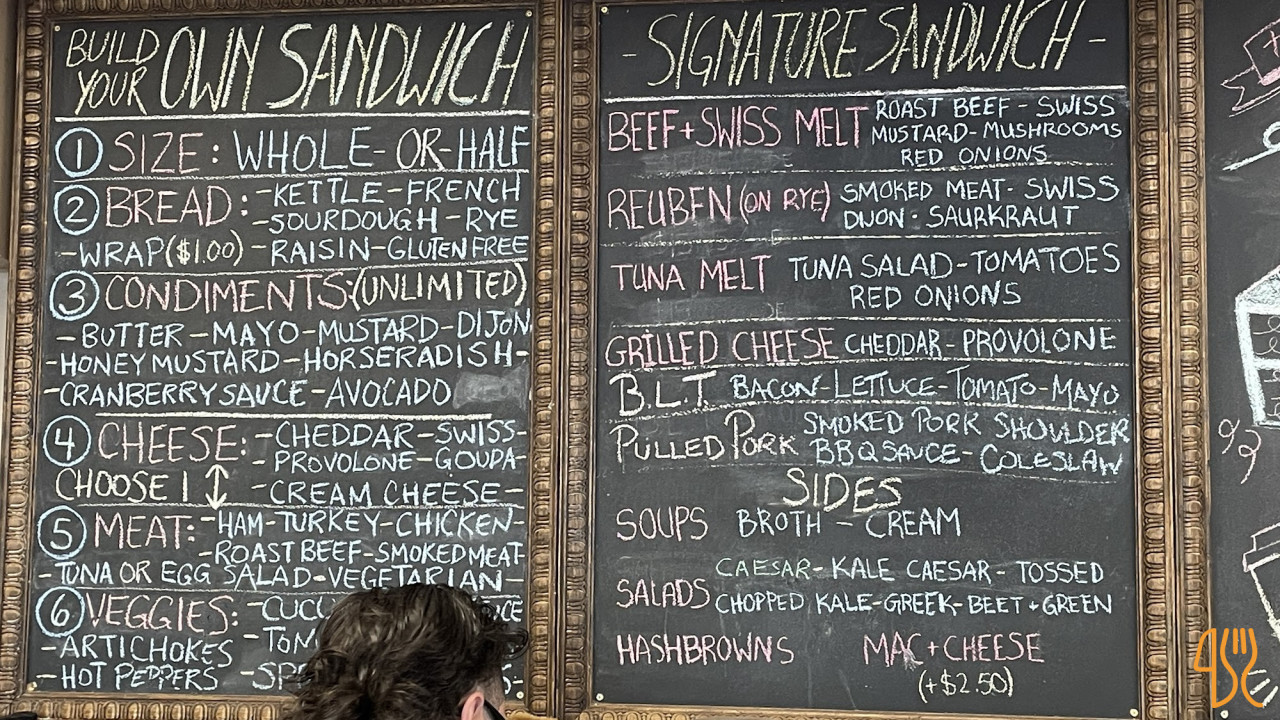 BUILD YOUR OWN SANDWICH
1 SIZE: WHOLE-OR-HALF
2 BREAD: -KETTLE-FRENCH
-SOURDOUGH-RYE
-WRAP($1.00) -RAISIN-GLUTEN FREE
3 CONDIMENTS:(UNLIMITED)
-BUTTER-MAYO-MUSTARD-DIJON
-HONEY MUSTARD-HORSERADISH-
-CRANBERRY SAUCE-AVOCADO
4 CHEESE: -CHEDDAR-SWISS-
PROVOLONE-GOUDA-
CHOOSE 1 -CREAM CHEESE-
5 MEAT: -HAM-TURKEY-CHICKEN-
-ROAST BEEF-SMOKED MEAT-
-TUNA OR EGG SALAD-VEGETARIAN-
6 VEGGIES:
-ARTICHOKES
-HOT PEPPERS
-SIGNATURE SANDWICH-
BEEF+SWISS MELT ROAST BEEF-SWISS
MUSTARD-MUSHROOMS
RED ONIONS
REUBEN (ON RYE) SMOKED MEAT-SWISS
DIJON-SAURKRAUT
TUNA MELT TUNA SALAD-TOMATOES
RED ONIONS
GRILLED CHEESE CHEDDAR-PROVOLONE
B.L.T. BACON-LETTUCE-TOMATO-MAYO
PULLED PORK SMOKED PORK SHOULDER
BBQ SAUCE-COLESLAW
SIDES
SOUPS BROTH - CREAM
SALADS CAESAR-KALE CAESAR-TOSSED
CHOPPED KALE-GREEK-BEET+GREEN
HASHBROWNS MAC+CHEESE
(+$2.50)